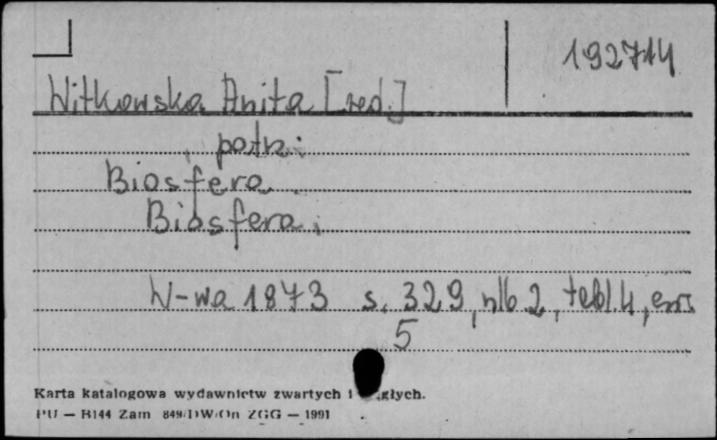 192714
Witkowska Anita [red.]
patrz:
Biosfera.
Biosfera.
W-wa 1873 s. 329, nlb 2, tabl. 4, err.
5
Karta katalogowa wydawnictw zwartych i głych.
PU — B144 Zam 849/DW/On ZGG — 1991